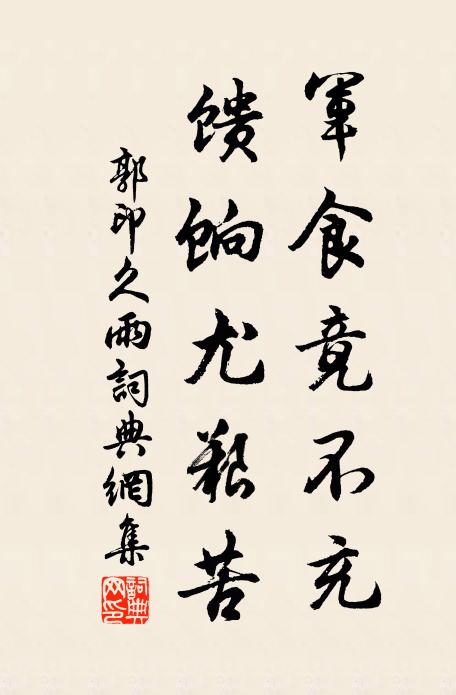 軍食竟不充
馈餉尤艱苦
郭印久雨詞典網集
詞典网印